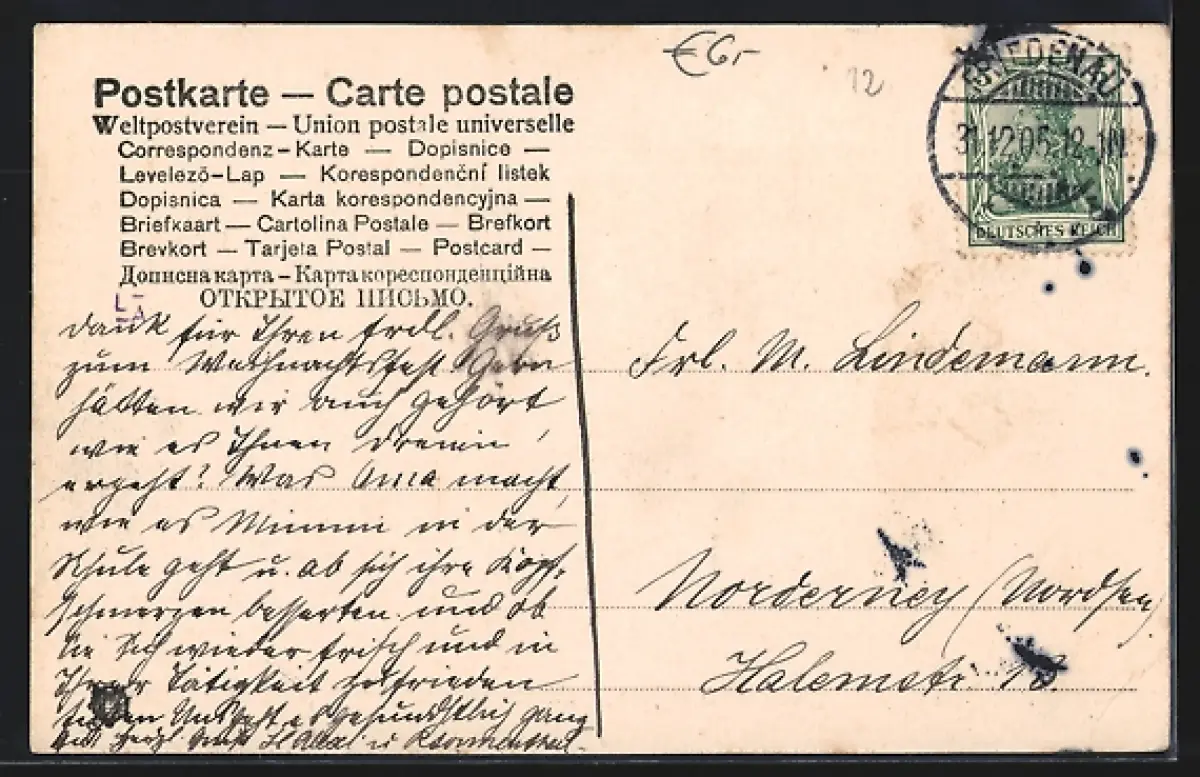 €6,-
12
FRIEDENAU
31.12.05.12-1N.
DEUTSCHES REICH
Postkarte — Carte postale
Weltpostverein — Union postale universelle
Correspondenz-Karte — Dopisnice —
Levelező-Lap — Korespondenční listek
Dopisnica — Karta korespondencyjna —
Briefkaart — Cartolina Postale — Brefkort
Brevkort — Tarjeta Postal — Postcard —
Дописна карта — Карта кореспонденційна
ОТКРЫТОЕ ПИСЬМО.
Dank für Ihren frdl. Gruß
zum Weihnachtsfest Gern
hätten wir auch gehört
wie es Ihnen
ergeht? Was Oma macht,
wie es Mimmi in der
Schule geht u. ob sich ihre Kopf-
schmerzen besserten und ob
Sie sich wieder frisch und in
Ihrer Tätigkeit zufrieden
gesundheitlich ganz
Frl. M. Lindemann.
Norderney (Nordsee)
Halemstr. 13.